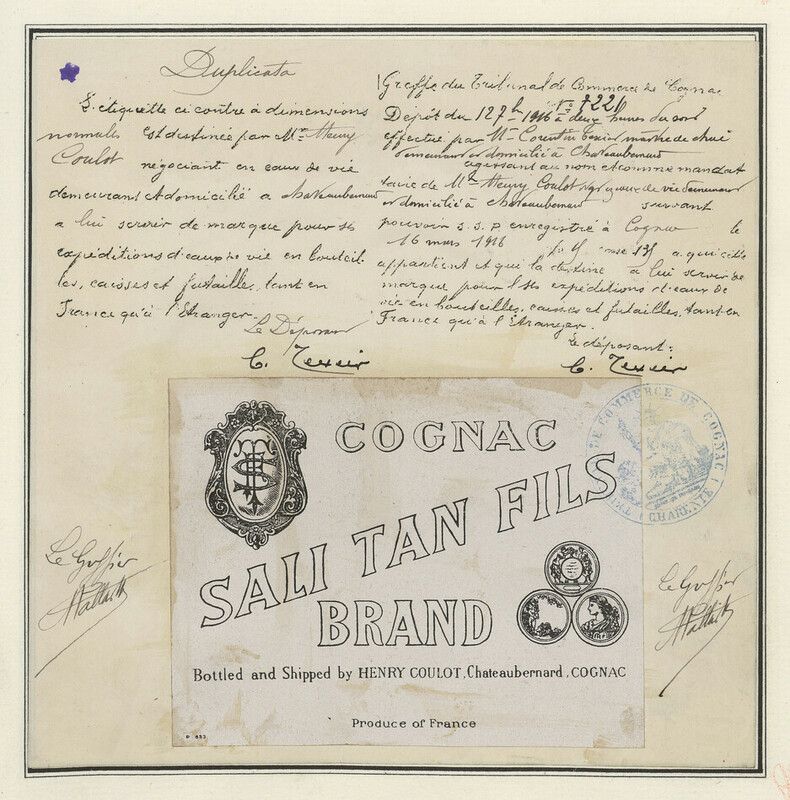 Duplicata
L'étiquette ci contre à dimensions
normales est destinée par Mr Henry
Coulot négociant en eaux de vie
demeurant et domicilié a chateaubernard
a lui servir de marque pour ses
expéditions d'eaux de vie en bouteil-
les, caisses et futailles, tant en
France qu'à l'Etranger.
Le Déposant
C. Texier
Greffe du Tribunal de Commerce de Cognac
Dépôt du 12 7bre 1916 No 7221 à deux heures du soir
effectué par Mr Corentin Texier maitre de chai
demeurant et domicilié à Chateaubernard
agissant au nom et comme mandat
taire de Mr Henry Coulot négt eaux de vie demeurant
et domicilié à chateaubernard suivant
pouvoir S.S.P. enregistré à Cognac le
16 mars 1916 case 135 a qui elle
appartient et qui la destine à lui servir de
marque pour ses expéditions d'eaux de
vie en bouteilles, caisses et futailles, tant en
France qu'à l'Etranger.
Le déposant:
C. Texier
COGNAC
SALI TAN FILS
BRAND
Bottled and Shipped by HENRY COULOT, Chateaubernard. COGNAC
Produce of France
TRIB DE COMMERCE DE COGNAC
(CHARENTE)
Le Greffier
Le Greffier